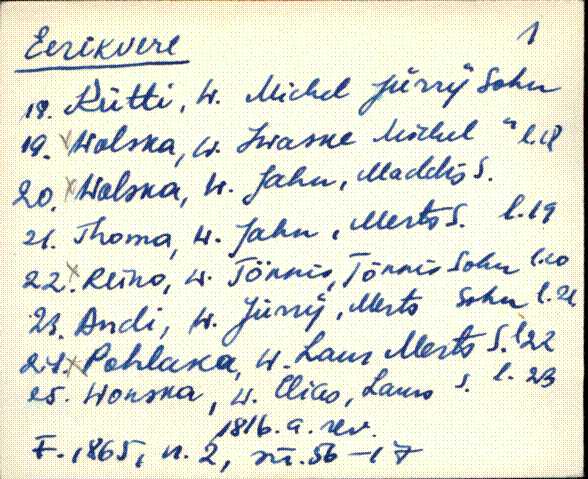 Eerikvere 1
18. Kütti, w. Michel Jürry Sohn
19. Wolska, w. Michel " l.18
20. Wolska, w. Jahn, Maddis S.
21. Thoma, w. Jahn, Merts S. l.19
22. Reino, w. Tönnis, Tönnis Sohn l.20
23. Andi, w. Jürry, Merts Sohn l.21
24. Pohlaka, w. Laur Merts S. l.22
25. Wonska, w. Elias, Laur S. l.23
1816. a. rev.
F. 1865, n. 2, sü. 56-17